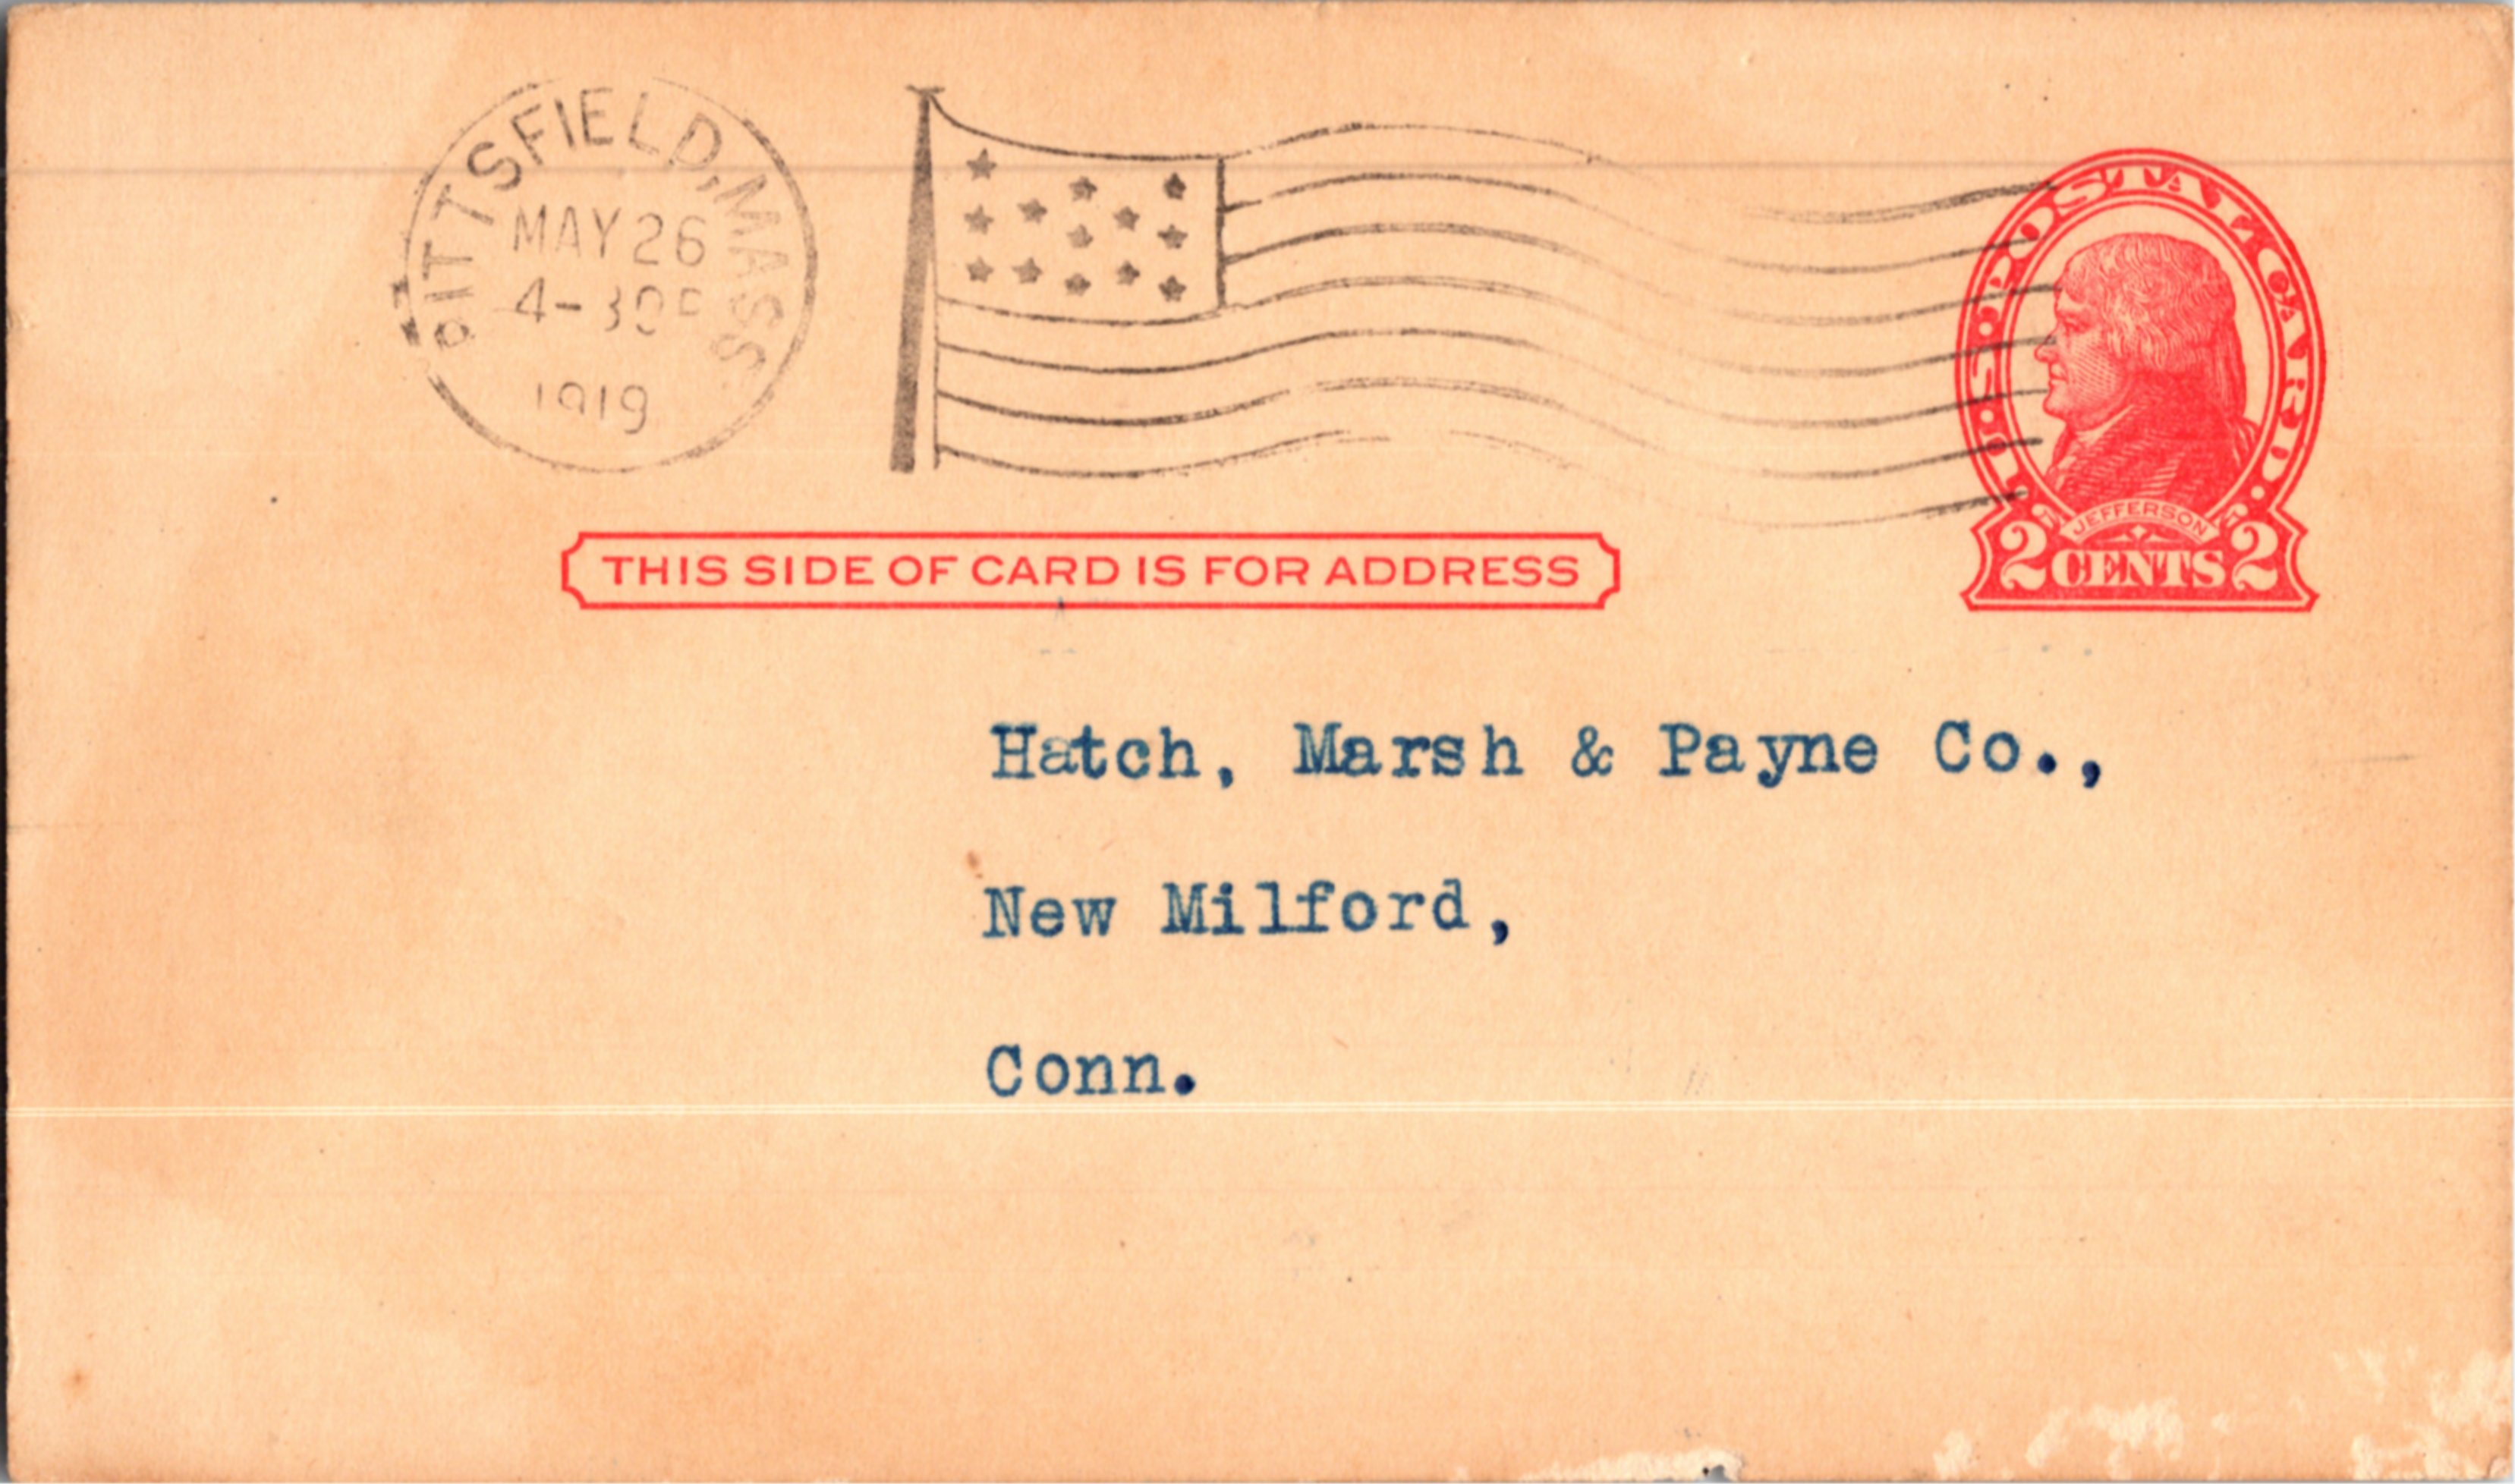 PITTSFIELD, MASS
MAY 26
4-30P
1919
U.S. POSTAL CARD.
JEFFERSON
2 CENTS 2
THIS SIDE OF CARD IS FOR ADDRESS
Hatch, Marsh & Payne Co.,
New Milford,
Conn.